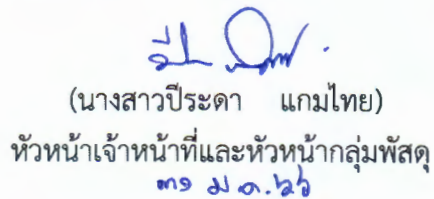 (นางสาวปีระดา แกมไทย)
หัวหน้าเจ้าหน้าที่และหัวหน้ากลุ่มพัสดุ
๓๑ ม.ค. ๖๖